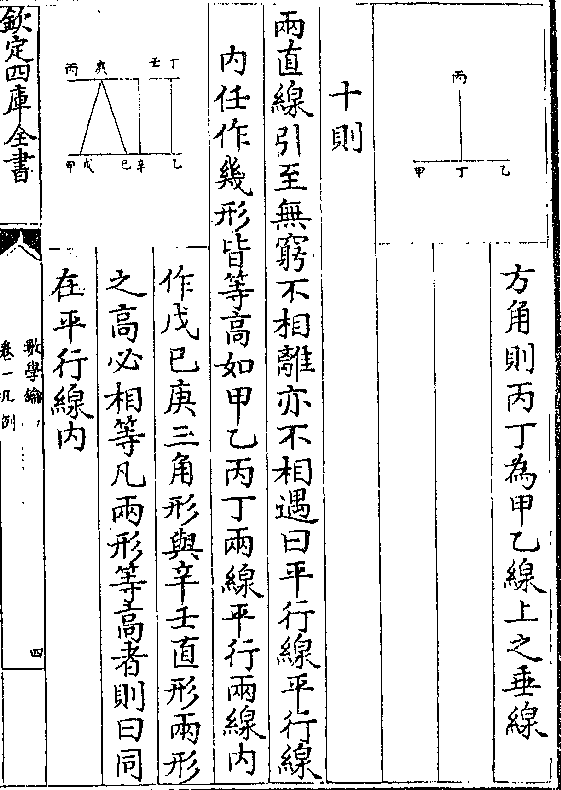 方角則丙丁為甲乙線上之垂線
丙
甲 丁 乙
十則
兩直線引至無窮不相離亦不相遇曰平行線平行線
內任作幾形皆等高如甲乙丙丁兩線平行兩線內
作戊巳庚三角形與辛壬直形兩形
之高必相等凡兩形等高者則曰同
在平行線內
丙 庚 壬 丁
甲 戊 巳 辛 乙
欽定四庫全書
數學鑰
卷一凡例
四